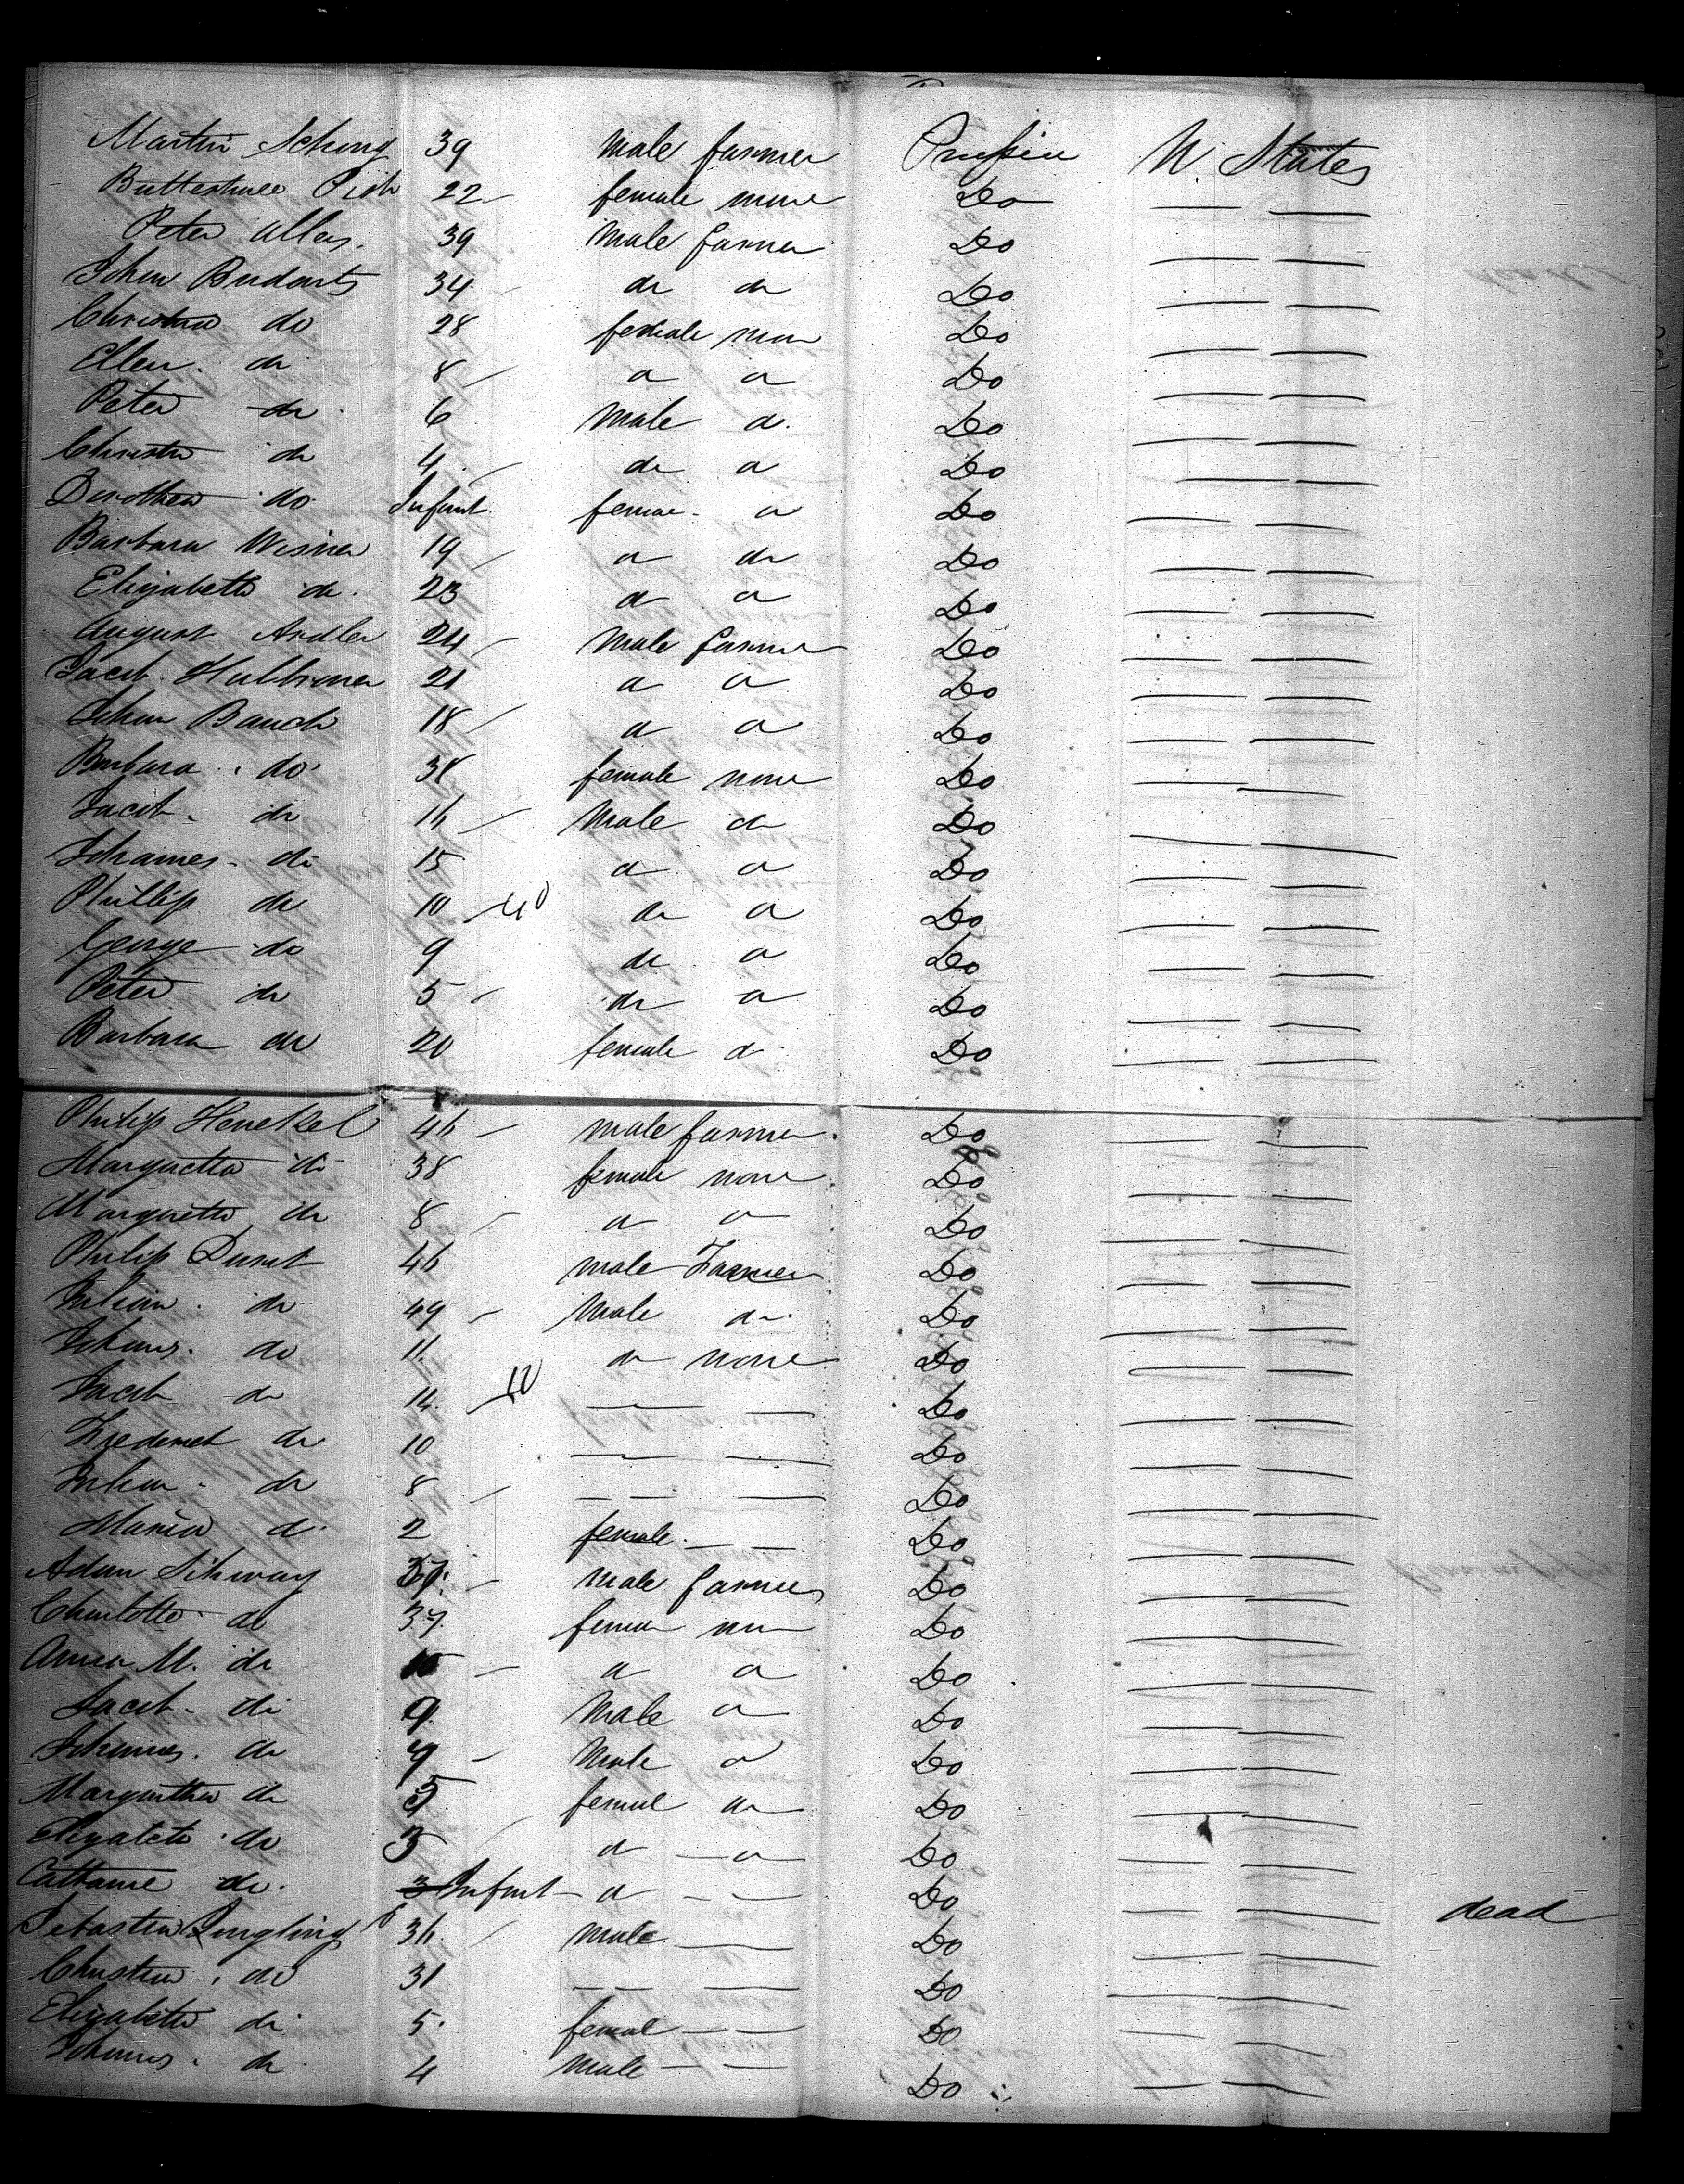 Martin Schug 39 male farmer Prussia U. States
22 female none Do
Peter Alles 39 male farmer Do
John Budarts 34 do do Do
Christina do 28 female none Do
Ellen do 8 do do Do
Peter do 6 male do Do
Christn do 4 do do Do
Dorothea do Infant female do Do
Barbara Wisner 19 do do Do
Elizabeth do 23 do do Do
August Andler 24 male farmer Do
Jacob 21 do do Do
John Bauch 18 do do Do
Barbara do 38 female none Do
Jacob do 16 male do Do
Johannes do 15 do do Do
Phillip do 10 40 do do Do
George do 9 do do Do
Peter do 5 do do Do
Barbara do 20 female do Do
Philip Henekel 46 male farmer Do
Margretta do 38 female none Do
Margretta do 8 do do Do
Philip Durst 46 male Farmer Do
do 49 male do Do
Johans do 11 do none Do
Jacob do 14 10 Do
Frederick do 10 Do
do 8 Do
Maria do 2 female Do
Adam Sihway 37 male farmer Do
Charlotte do 37 female none Do
Anna M. do do do Do
Jacob do 9 male do Do
Johannes do male do Do
Margretha do 5 female do Do
Elizabeth do 3 do do Do
Catharine do 3 Infant do Do dead
Sebastian 36 male Do
Christina do 31 Do
Elizabeth do 5 female Do
Johannes do 4 male Do